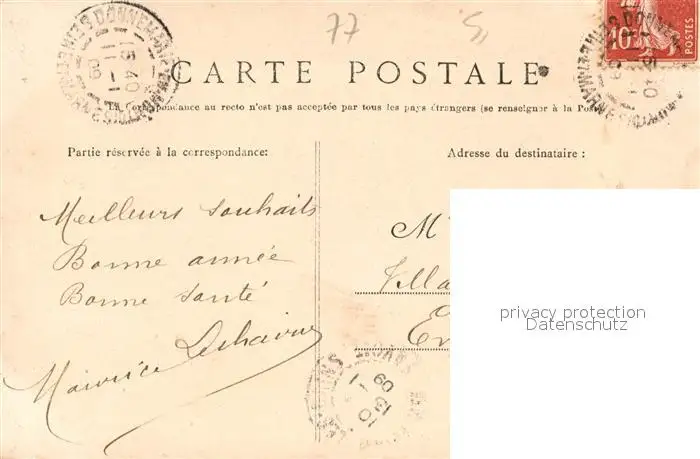 77
CARTE POSTALE
La Correspondance au recto n'est pas acceptée par tous les pays étrangers (se renseigner à la Poste
Partie réservée à la correspondance:
Adresse du destinataire :
Meilleurs souhaits
Bonne année
Bonne santé
Maurice
M
Villa
privacy protection
Datenschutz
10
POSTES
DONNEMARIE
15 40